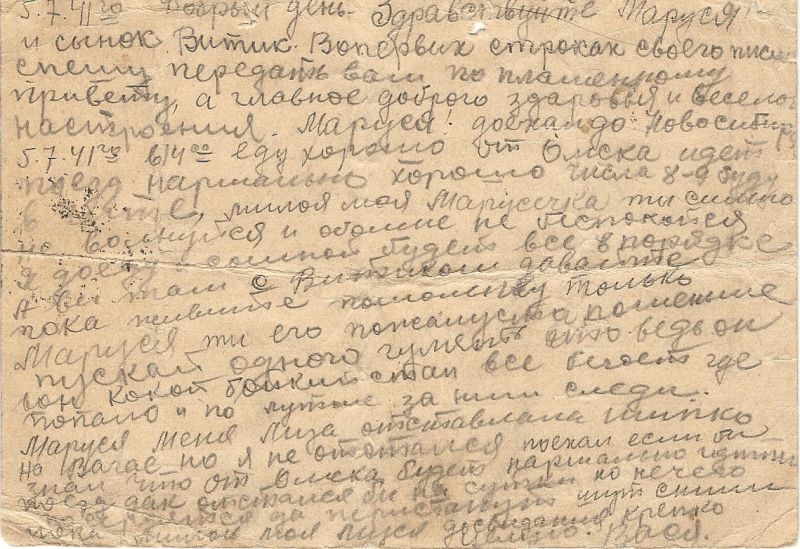 5.7.41 го Добрый день. Здравствуйте Маруся!
и сынок Витик. Вопервих строках своего писм
спешу передать вам по пламенному
привету, а главное доброго здоровья и веселог
настроения. Маруся! доехал до Новосибирс
5.7.41 го в 14 00 еду хорошо от Омска идет
поезд нармально хорошо числа 8-9 буду
в милоя моя Марусечка ти сильно
не волнуйся и обомне не беспокойся
я доеду и сомной будет все в порядке
А ви там с Витиком давайте
пока живите помоленку только
Маруся ти его пожалуста поменьше
пускай одного гулеть это ведь он
вон какой бойкий стал все бегает где
попало и по лутше за ним следи.
Маруся меня Лиза отставляла шипко
на Вагае, но я не отстался поехал если би
знал что от Омска будет нармально идти
поезд дак отстался би на сутки но нечего
за
пока милоя моя досвидания крепко
целую. Вася.